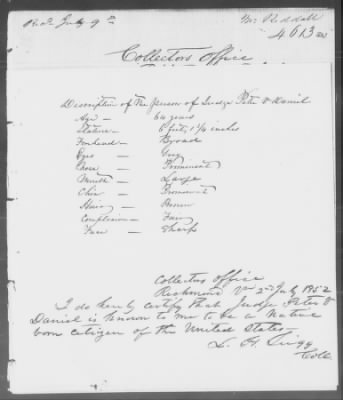 Recd July 9th
Mr Reddall
4613
Collectors Office
Description of the Person of Judge Peter V Daniel
Age — 64 years
Stature — 6 feet, 1 1/4 inches
Forehead — Broad
Eyes — Grey
Nose — Prominent
Mouth — Large
Chin — Prominent
Hair — Brown
Complexion — Fair
Face — Sharp
Collectors Office
Richmond Va 2d July 1852
I do hereby certify that Judge Peter V
Daniel is known to me to be a Native
born citizen of the United States—
Coll